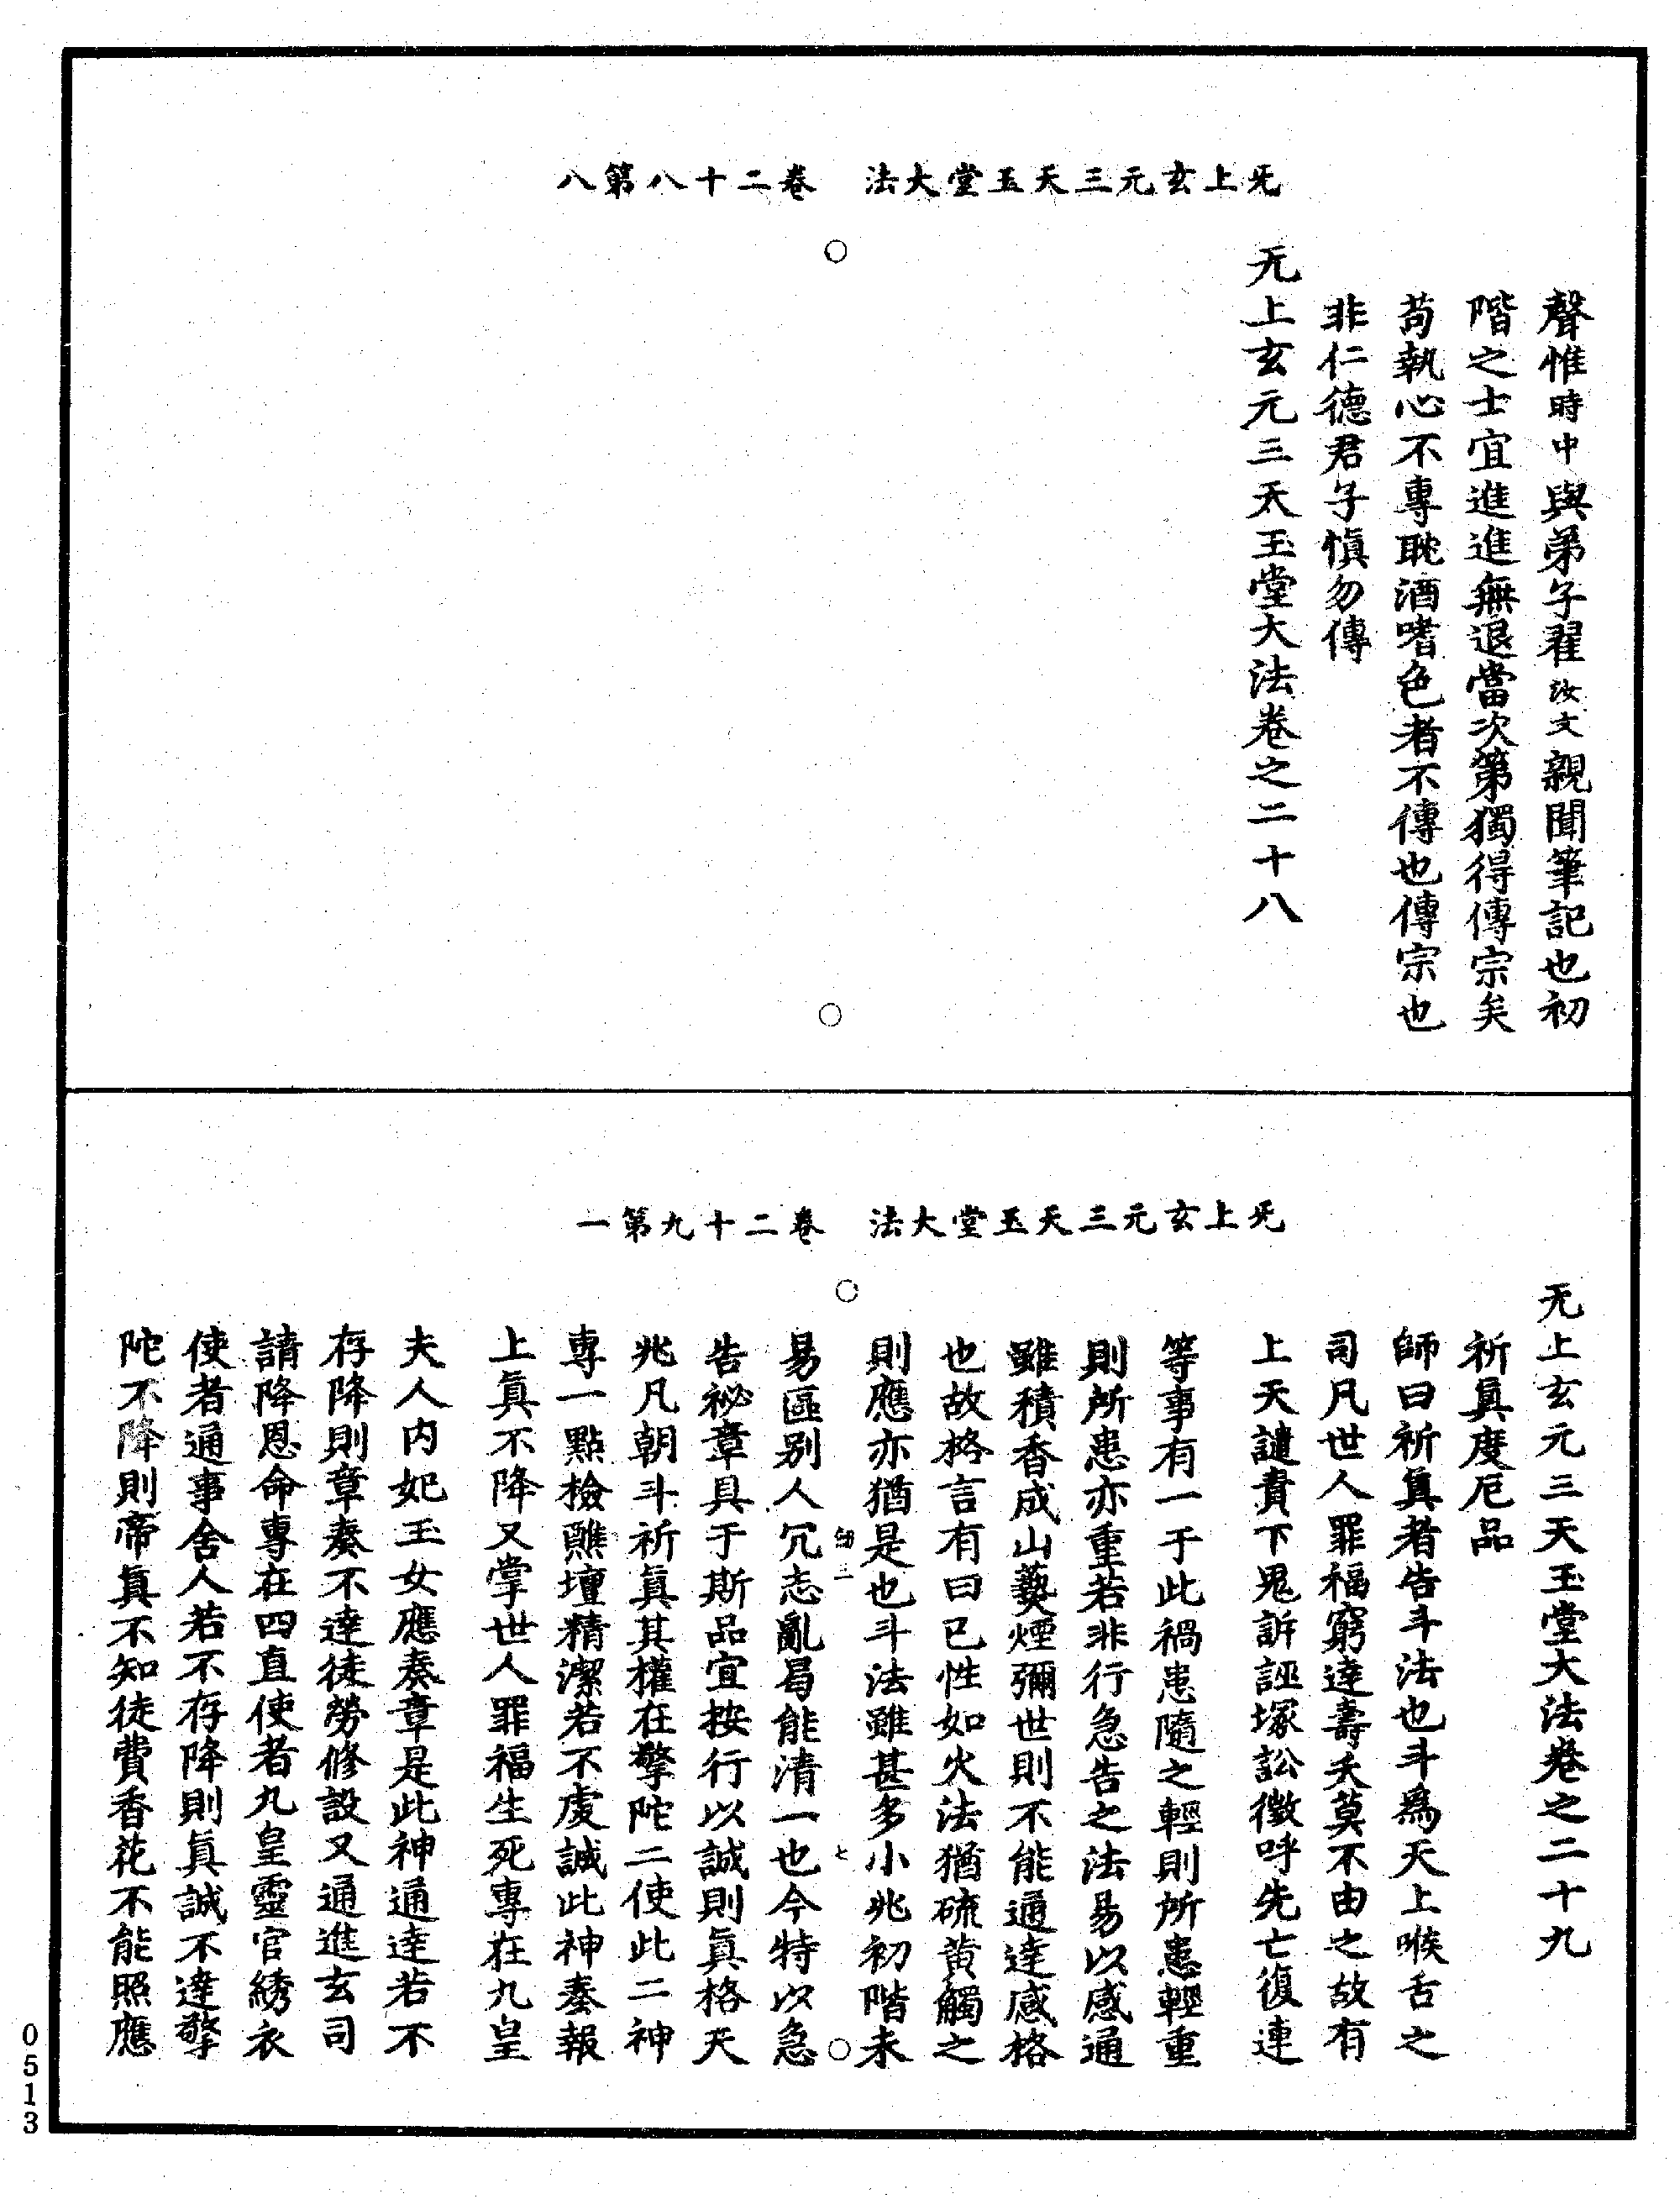 无上玄元三天玉堂大法　卷二十八第八
聲惟時中與弟子翟汝文親聞筆記也初
階之士宜進進無退當次第獨得傳宗矣
苟執心不專耽酒嗜色者不傳也傳宗也
非仁德君子慎勿傳
无上玄元三天玉堂大法卷之二十八
无上玄元三天玉堂大法　卷二十九第一
无上玄元三天玉堂大法卷之二十九
祈真度厄品
師曰祈真者告斗法也斗為天上喉舌之
司凡世人罪福窮達壽夭莫不由之故有
上天譴責下鬼訴誣塚訟徵呼先亡復連
等事有一于此禍患隨之輕則所患輕重
則所患亦重若非行急告之法易以感通
雖積香成山爇煙彌世則不能通達感格
也故格言有曰已性如火法猶硫黃觸之
則應亦猶是也斗法雖甚多小兆初階未
易區別人冗志亂曷能清一也今特以急
告祕章具于斯品宜按行以誠則真格天
兆凡朝斗祈真其權在擎陀二使此二神
專一點檢醮壇精潔若不虔誠此神奏報
上真不降又掌世人罪福生死專在九皇
夫人內妃玉女應奏章是此神通達若不
存降則章奏不達徒勞修設又通進玄司
請降恩命專在四直使者九皇靈官綉衣
使者通事舍人若不存降則真誠不達擎
陀不降則帝真不知徒費香花不能照應
七
0513